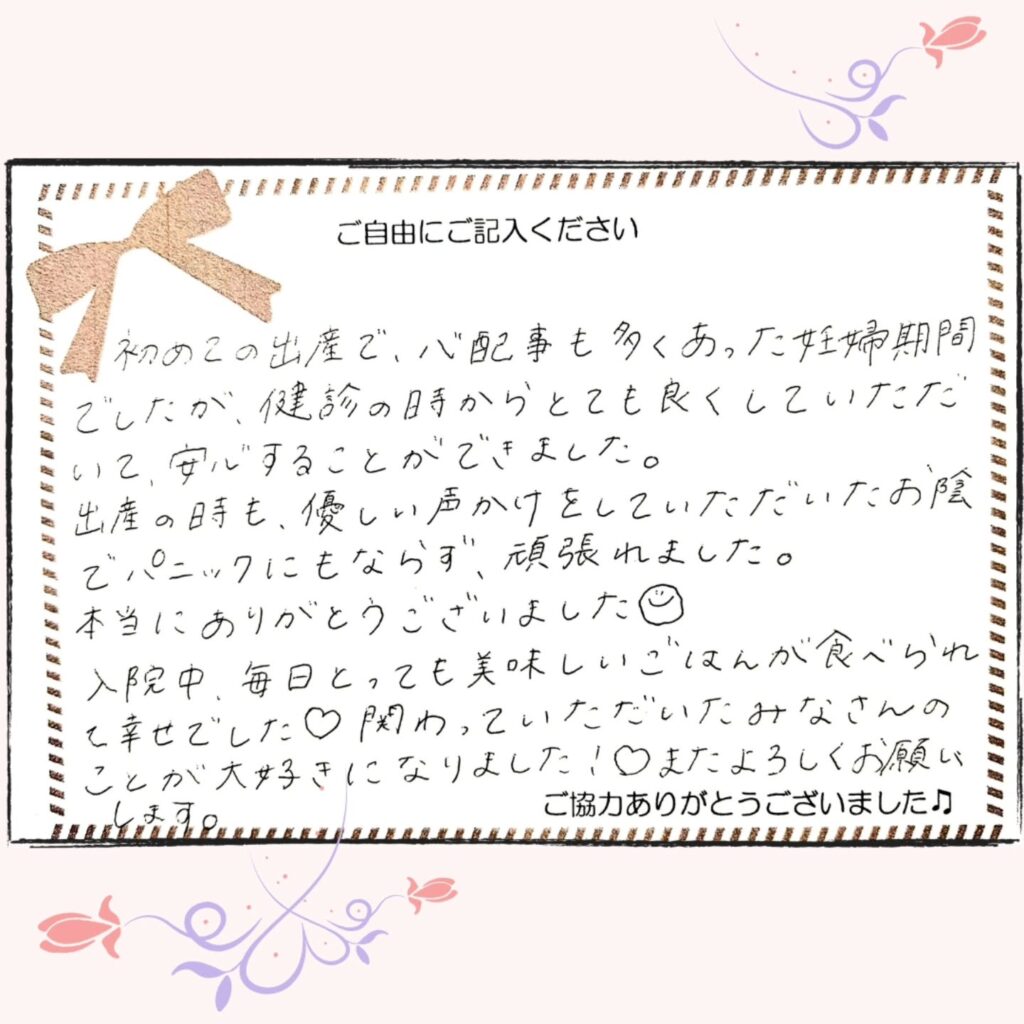 ご自由にご記入ください
初めての出産で、心配事も多くあった妊婦期間
でしたが、健診の時からとても良くしていただだ
いて、安心することができました。
出産の時も、優しい声かけをしていただいたお陰
でパニックにもならず、頑張れました。
本当にありがとうございました☺
入院中、毎日とっても美味しいごはんが食べられ
て幸せでした♡関わっていただいたみなさんの
ことが大好きになりました！♡またよろしくお願い
します。
ご協力ありがとうございました♫